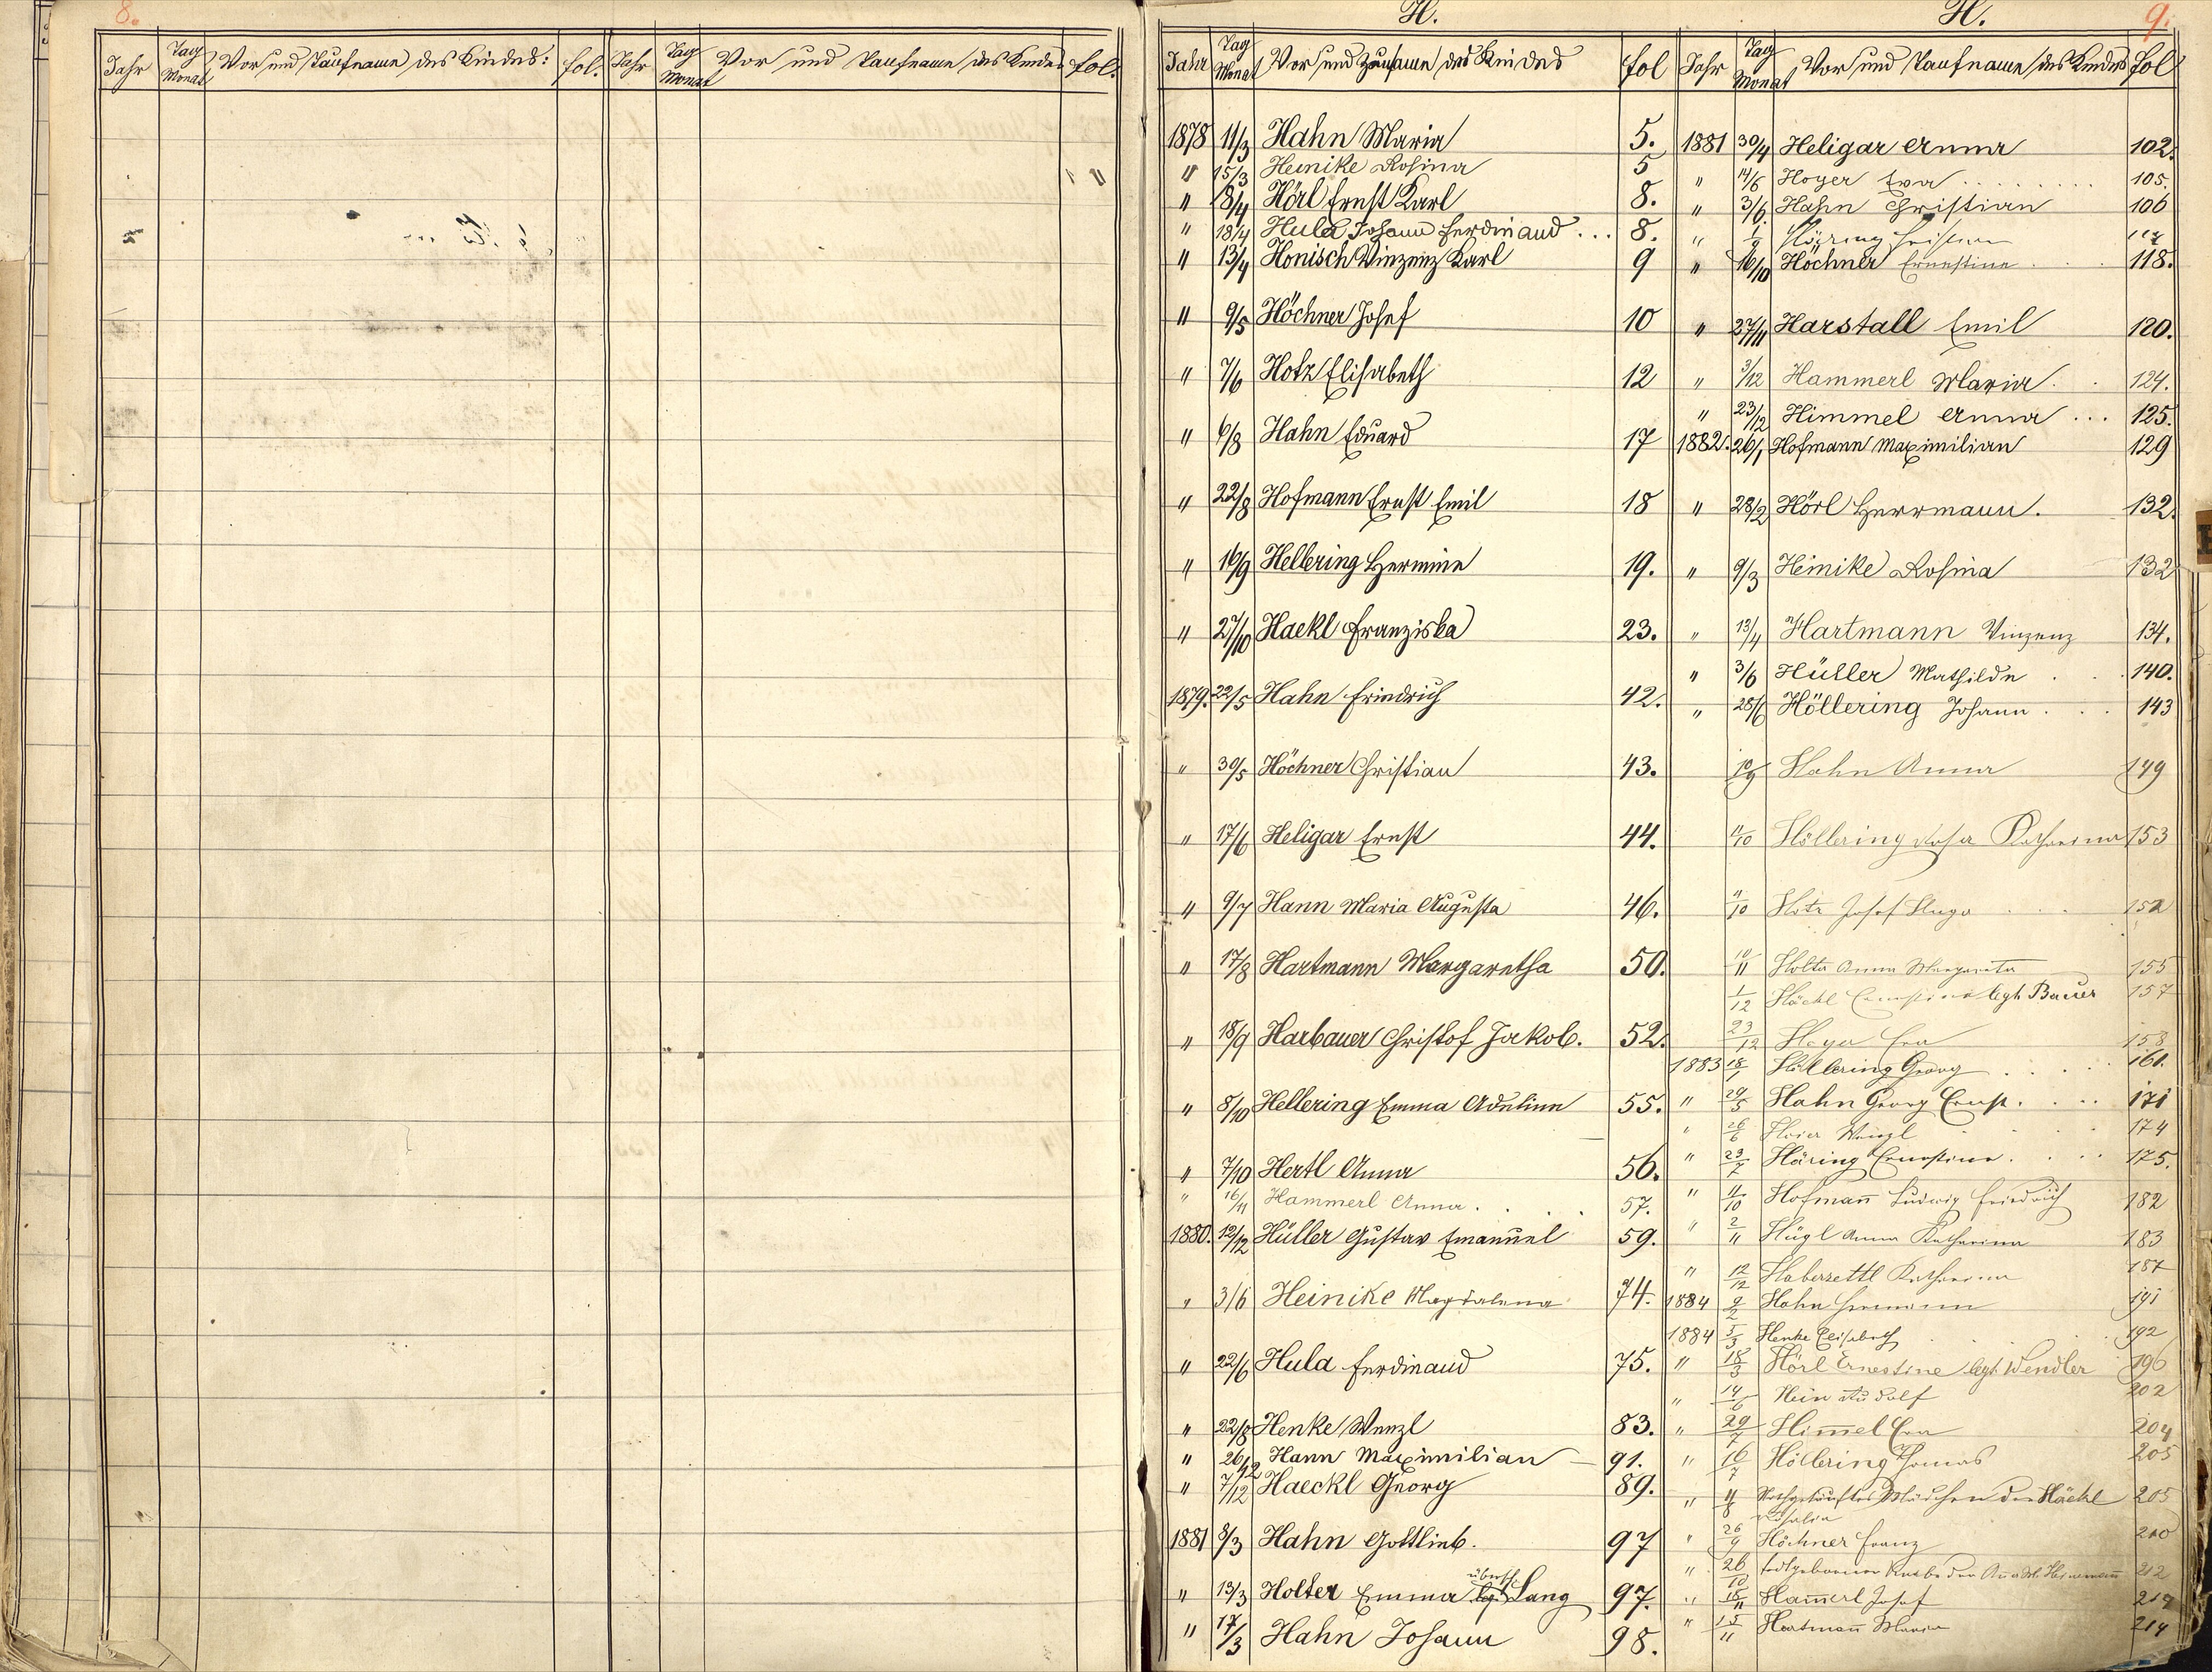 8.
Jahr Tag Monat Vor und Taufname des Kindes: fol. Jahr Tag Monat Vor und Taufname des Kindes fol.
H. H. 9.
Jahr Tag Monat Vor und Zuname des Kindes fol
1878 11/3 Hahn Maria 5.
" 15/3 Heinike Rosina 5
" 8/4 Hörl Ernst Karl 8.
" 18/4 Hula Johann Ferdinand ... 8.
" 13/4 Honisch Vinzenz Karl 9
" 9/5 Höchner Josef 10
" 7/6 Hotz Elisabeth 12
" 6/8 Hahn Eduard 17
" 22/8 Hofmann Ernst Emil 18
" 16/9 Hellering Hermine 19.
" 27/10 Haekl Franziska 23.
1879. 22/5 Hahn Friedrich 42.
" 30/5 Höchner Christian 43.
" 17/6 Heligar Ernst 44.
" 9/7 Hann Maria Augusta 46.
" 17/8 Hartmann Margaretha 50.
" 18/9 Harbauer Christof Jakob. 52.
" 8/10 Hellering Emma Adeline 55.
" 7/10 Hertl Anna 56.
" 16/11 Hammerl Anna . . . 57.
1880. 12/12 Hüller Gustav Emanuel 59.
" 3/6 Heinike Magdalena 74.
" 22/6 Hula Ferdinand 75.
" 22/8 Henke Wenzl 83.
" 26/12 Hann Maximilian — 91.
" 7/12 Haeckl Georg 89.
1881 8/3 Hahn Gottlieb. 97
" 13/3 Holter Emma Lang 97.
" 17/3 Hahn Johann 98.
Jahr Tag Monat Vor und Taufname des Kindes fol
1881 30/4 Heligar Anna 102.
" 14/5 Hoyer Eva ........ 105.
" 3/6 Hahn Christian 106
" Häring
" 16/10 Höchner Ernestine . . . 118.
" 27/11 Harstall Emil 120.
" 3/12 Hammerl Maria . . 124.
" 23/12 Himmel Anna ... 125.
1882. 26/1 Hofmann Maximilian 129
" 28/2 Hörl Herrmann. 132.
" 9/3 Heinike Rosina 132
" 13/4 Hartmann Vinzenz 134.
" 3/6 Hüller Mathilde . . 140.
" 28/6 Höllering Johann . . . 143
10/9 Hahn Anna 149
11/10 Höllering Rosa Katharina 153
11/10 Hotz Josef Hugo . . . 152
10/11 Holter Anna Margareta 155
1/12 Häckl Ernestine legt. Bauer 157
23/12 Hoyer Eva 158
1883 18/1 Höllering Georg . . . . 161.
" 29/5 Hahn Georg Ernst. . . . 171
" 26/6 Hoier Wenzl . . . . 174
" 23/7 Häring Ernestine. . . . 175.
" 11/10 Hofmañ Ludwig Friedrich 182
" 2/11 Hügl Anna Katharina 183
" 12/12 Haberzettl Katharina 187
1884 9/2 Hahn Hermann 191
1884 5/3 Henke Elisabeth . . . . 192
" 18/3 Hörl Ernestine legt. Wendler 196
" 14/6 Hein Rudolf 202
" 29/7 Him̃el Eva 204
" 16/7 Höllering Thomas 205
" 4/8 Nothgetauftes Mädchen der Häckl 205
Rosalia
" 26/9 Höchner Franz 210
" 26/10 todtgeborener Knabe der 212
" 18/11 Ham̃erl Josef 214
" 15/11 Hartmañ Maria 214